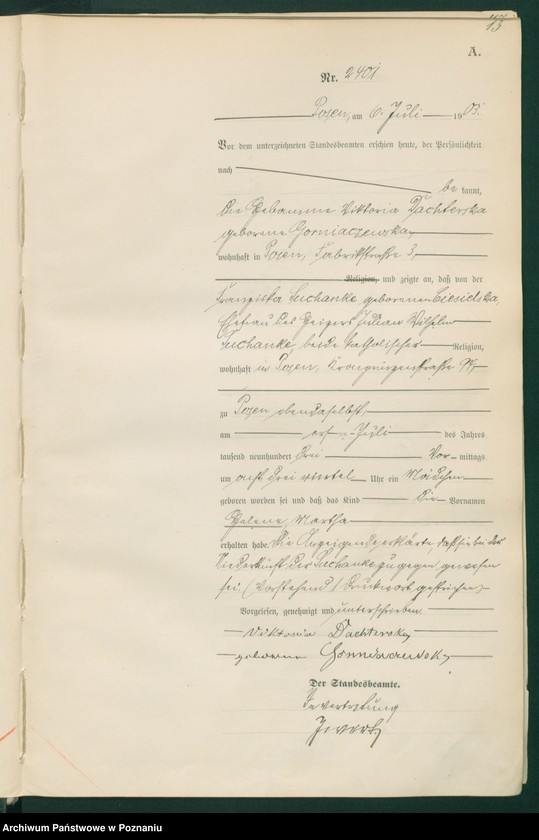 13
A.
Nr. 2401
Posen, am 6. Juli 1903.
Vor dem unterzeichneten Standesbeamten erschien heute, der Persönlichkeit
nach
be kannt,
die Hebamme Viktoria Dachterska
geborene Gorniaczewska,
wohnhaft in Posen, Fabrikstraße 3,
Religion, und zeigte an, daß von der
Franziska Suchanke geborenen Ciesielska,
Ehefrau des Geigers Julian Wilhelm
Suchanke, beide katholischer Religion,
wohnhaft in Posen, Kronprinzenstraße
zu Posen ebendaselbst,
am Juli des Jahres
tausend neunhundert drei Vor-mittags
um acht drei viertel Uhr ein Mädchen
geboren worden sei und daß das Kind die Vornamen
Helene Martha
erhalten habe. Die Anzeigende erklärte, daß sie bei der
Niederkunft der Suchanke zugegen gewesen
sei. (Vorstehend 1 Druckwort gestrichen)
Vorgelesen, genehmigt und unterschrieben
Viktoria Dachterska
geborene
Der Standesbeamte.
In Vertretung
Archiwum Państwowe w Poznaniu